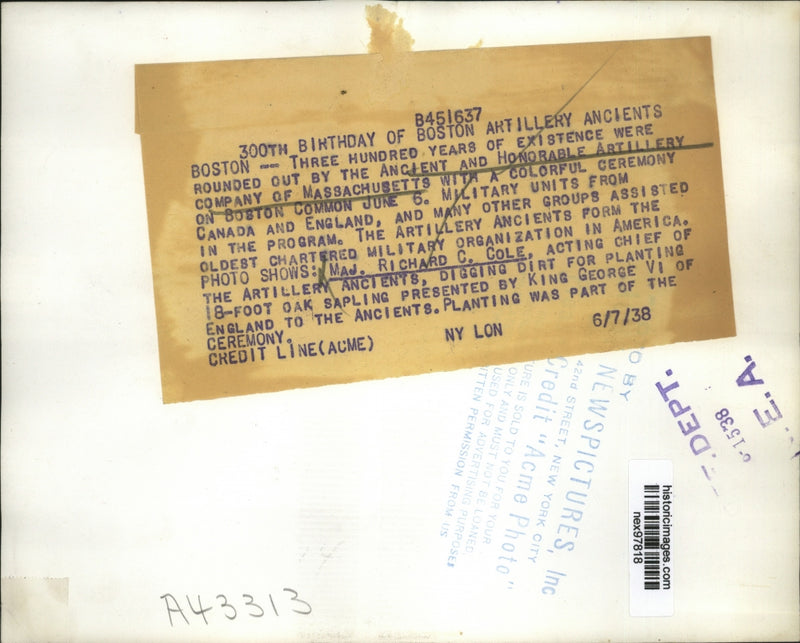 B451637
300TH BIRTHDAY OF BOSTON ARTILLERY ANCIENTS
BOSTON -- THREE HUNDRED YEARS OF EXISTENCE WERE
ROUNDED OUT BY THE ANCIENT AND HONORABLE ARTILLERY
COMPANY OF MASSACHUSETTS WITH A COLORFUL CEREMONY
ON BOSTON COMMON JUNE 6. MILITARY UNITS FROM
CANADA AND ENGLAND, AND MANY OTHER GROUPS ASSISTED
IN THE PROGRAM. THE ARTILLERY ANCIENTS FORM THE
OLDEST CHARTERED MILITARY ORGANIZATION IN AMERICA.
PHOTO SHOWS: MAJ. RICHARD C. COLE, ACTING CHIEF OF
THE ARTILLERY ANCIENTS, DIGGING DIRT FOR PLANTING
18-FOOT OAK SAPLING PRESENTED BY KING GEORGE VI OF
ENGLAND TO THE ANCIENTS. PLANTING WAS PART OF THE
CEREMONY.
CREDIT LINE (ACME) NY LON 6/7/38
D BY
NEWSPICTURES, Inc
42ND STREET, NEW YORK CITY
Credit "Acme Photo"
URE IS SOLD TO YOU FOR YOUR
ONLY AND MUST NOT BE LOANED,
USED FOR ADVERTISING PURPOSES
ITTEN PERMISSION FROM US
T. DEPT.
1538
E. A.
historicimages.com
nex97818
A43313